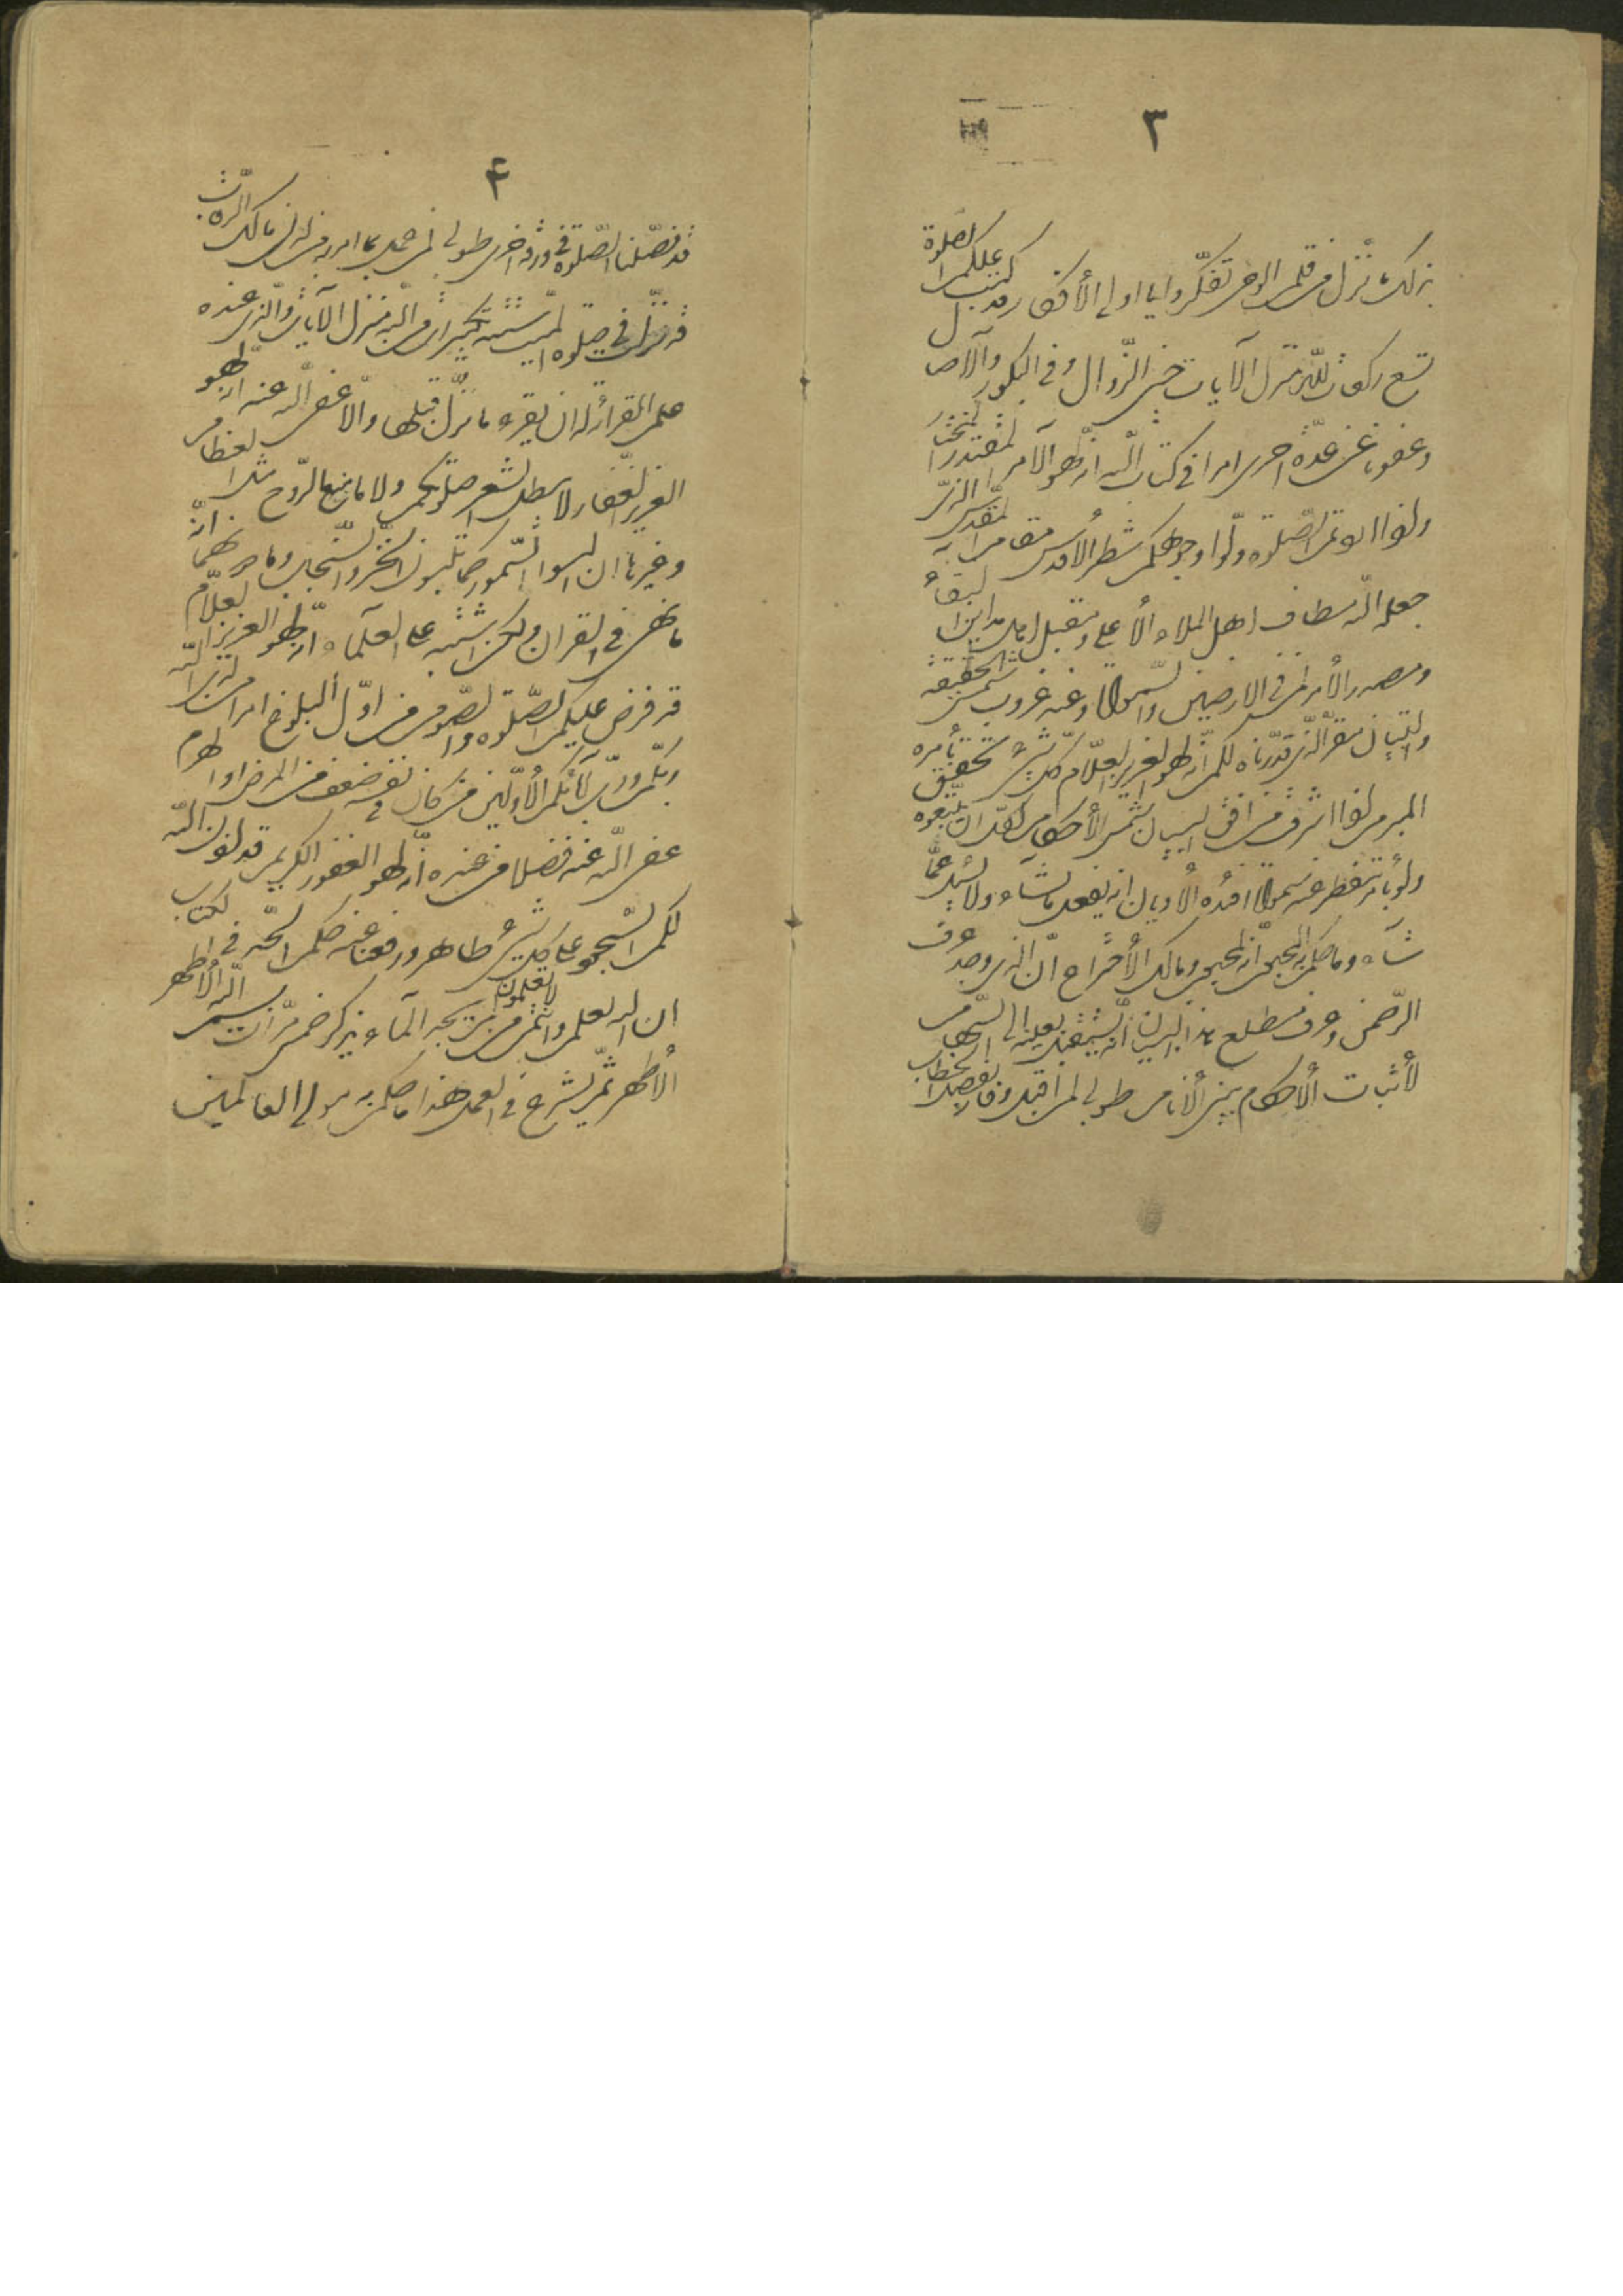 ٣
بذلك ما نزّل من قلم الوحى تفكّروا يا اولى الأفكار قد كتب عليكم الصلوة
تسع ركعات للّه منزل الآيات حين الزّوال و فى البكور و الآصال
و عفونا عن عدّة اخرى امرا فى كتاب اللّه انه لهو الآمر المقتدر المختار
و اذا اردتم الصّلوة ولّوا وجوهكم شطرى الأقدس المقام المقدّس الذى
جعله اللّه مطاف اهل الملاء الأعلى و مقبل اهل مدائن البقاء
و مصدر الأمر لمن فى الارضين و السّموات و عند غروب شمس الحقيقة
و التبيان المقر الّذى قدّرناه لكم انّه لهو العزيز العلّام كلّ شىء تحقق بأمره
المبرم اذا اشرقت من افق البيان شمس الأحكام لكل ان يتّبعوه
و لو بأمر تنفطر عنه سموات افئدة الأديان انه يفعل ما يشاء و لا يسئل عمّا
شاء و ما حكم به المحبوب انّه لمحبوب و مالك الأختراع انّ الذى وجد عرف
الرّحمن و عرف مطلع هذا البيان انّه يستقبل بعينيه السّهام
لأثبات الأحكام بين الأنام طوبى لمن اقبل و فاز بفصل الخطاب
۴
قد فصّلنا الصّلوة فى ورقة اخرى طوبى لمن عمل بما امر به من لدن مالك الرّقاب
قد نزّلت فى صلوة الميّت ستّة تكبيرات من اللّه منزل الآيات و الّذى عنده
علم القرائة له ان يقرء ما نزّل قبلها و الّا عفى اللّه عنه انه لهو
العزيز الغفّار لا يبطل الشعر صلوتكم و لا ما منع عن الرّوح مثل العظام
و غيرها ان البسوا السّمور كما تلبسون الخزّ و السّنجاب و ما دونهما انّه
ما نهى فى القران و لكن اشتبه على العلماء انّه لهو العزيز العلّام
قد فرض عليكم الصّلوة و الصّوم من اوّل البلوغ امرا من لدى اللّه
ربّكم و ربّ آبائكم الأوّلين من كان فى نفسه ضعف من المرض او الهرم
عفى اللّه عنه فضلا من عنده انّه لهو الغفور الكريم قد اذن اللّه
لكم السّجود على كلّ شىء طاهر و رفعنا عنه حكم الحدّ فى الكتاب
ان اللّه يعلم و انتم لا تعلمون من لم يجد الماء يذكر خمس مرّات بسم اللّه الأطهر
الأطهر ثمّ يشرع فى العمل هذا ما حكم به مولى العالمين